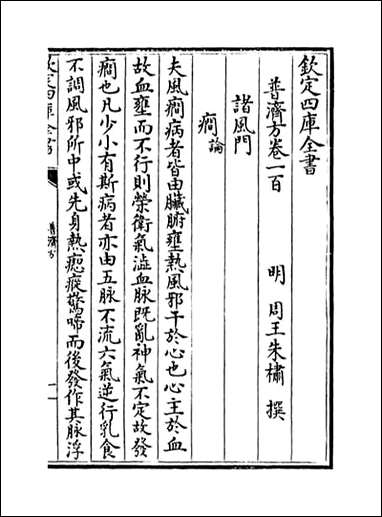 欽定四庫全書
普濟方卷一百
明 周王朱橚 撰
諸風門
癇論
夫風癇病者皆由臟腑壅熱風邪干於心也心主於血
故血壅而不行則榮衛氣澁血脉既亂神氣不定故發
癇也凡少小有斯病者亦由五脉不流六氣逆行乳食
不調風邪所中或先身熱瘛瘲驚啼而後發作其脉浮
欽定四庫全書
普濟方
一